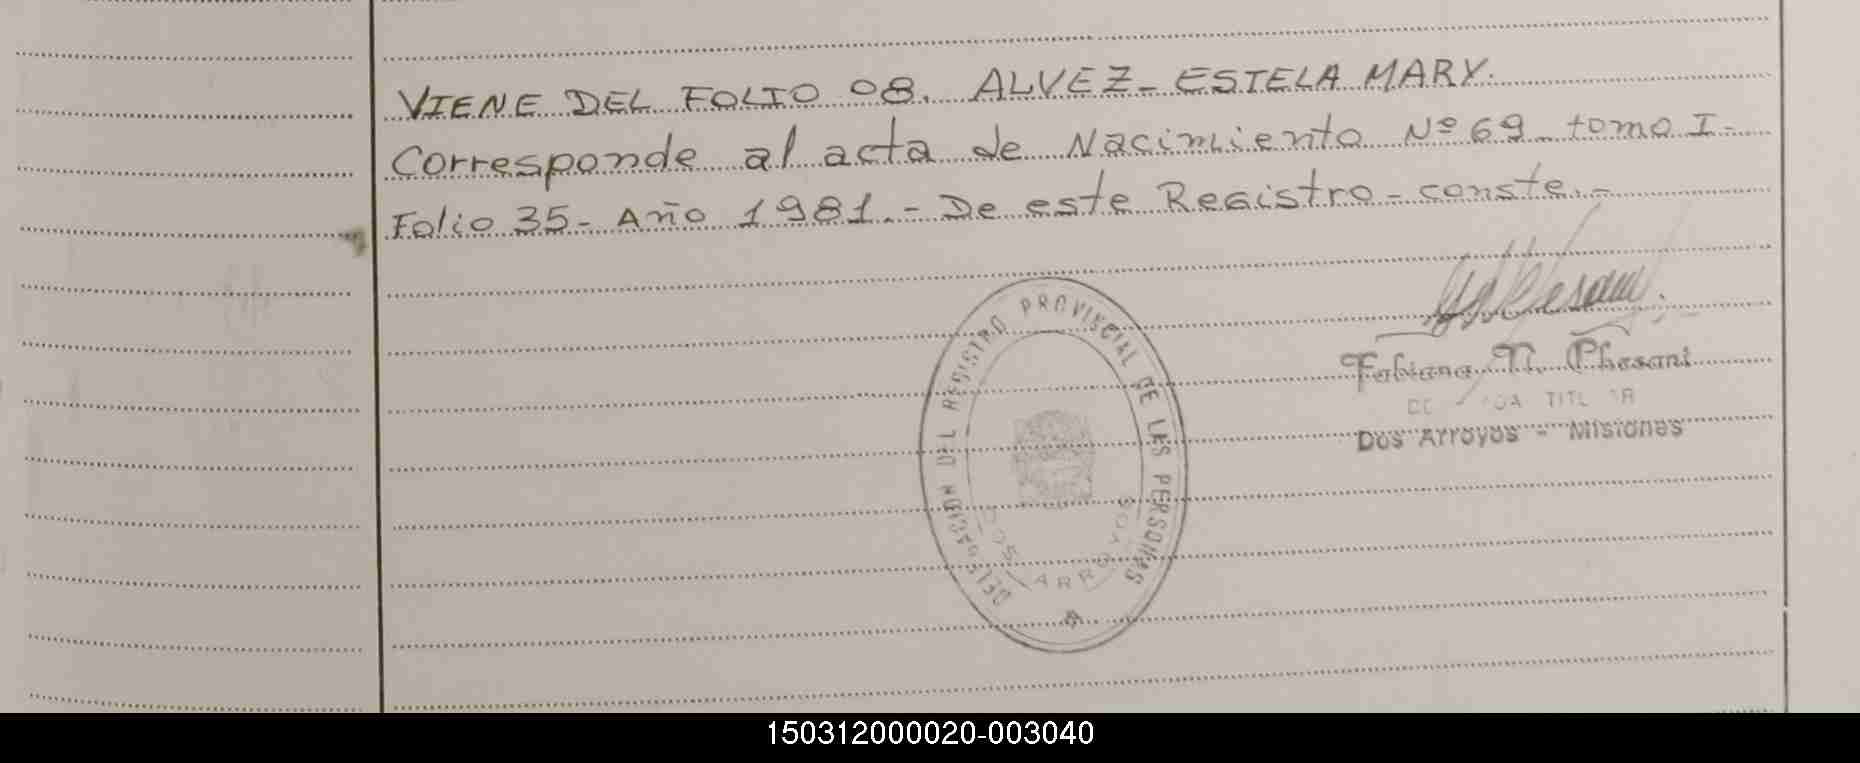 VIENE DEL FOLIO 08. ALVEZ- ESTELA MARY.
Corresponde al acta de Nacimiento Nº 69 tomo I-
Folio 35- Año 1981.- De este Registro- conste.-
DELEGACION DEL REGISTRO PROVINCIAL DE LAS PERSONAS
DOS ARROYOS
Fabiana N. Chesani
Dos Arroyos - Misiones
150312000020-003040